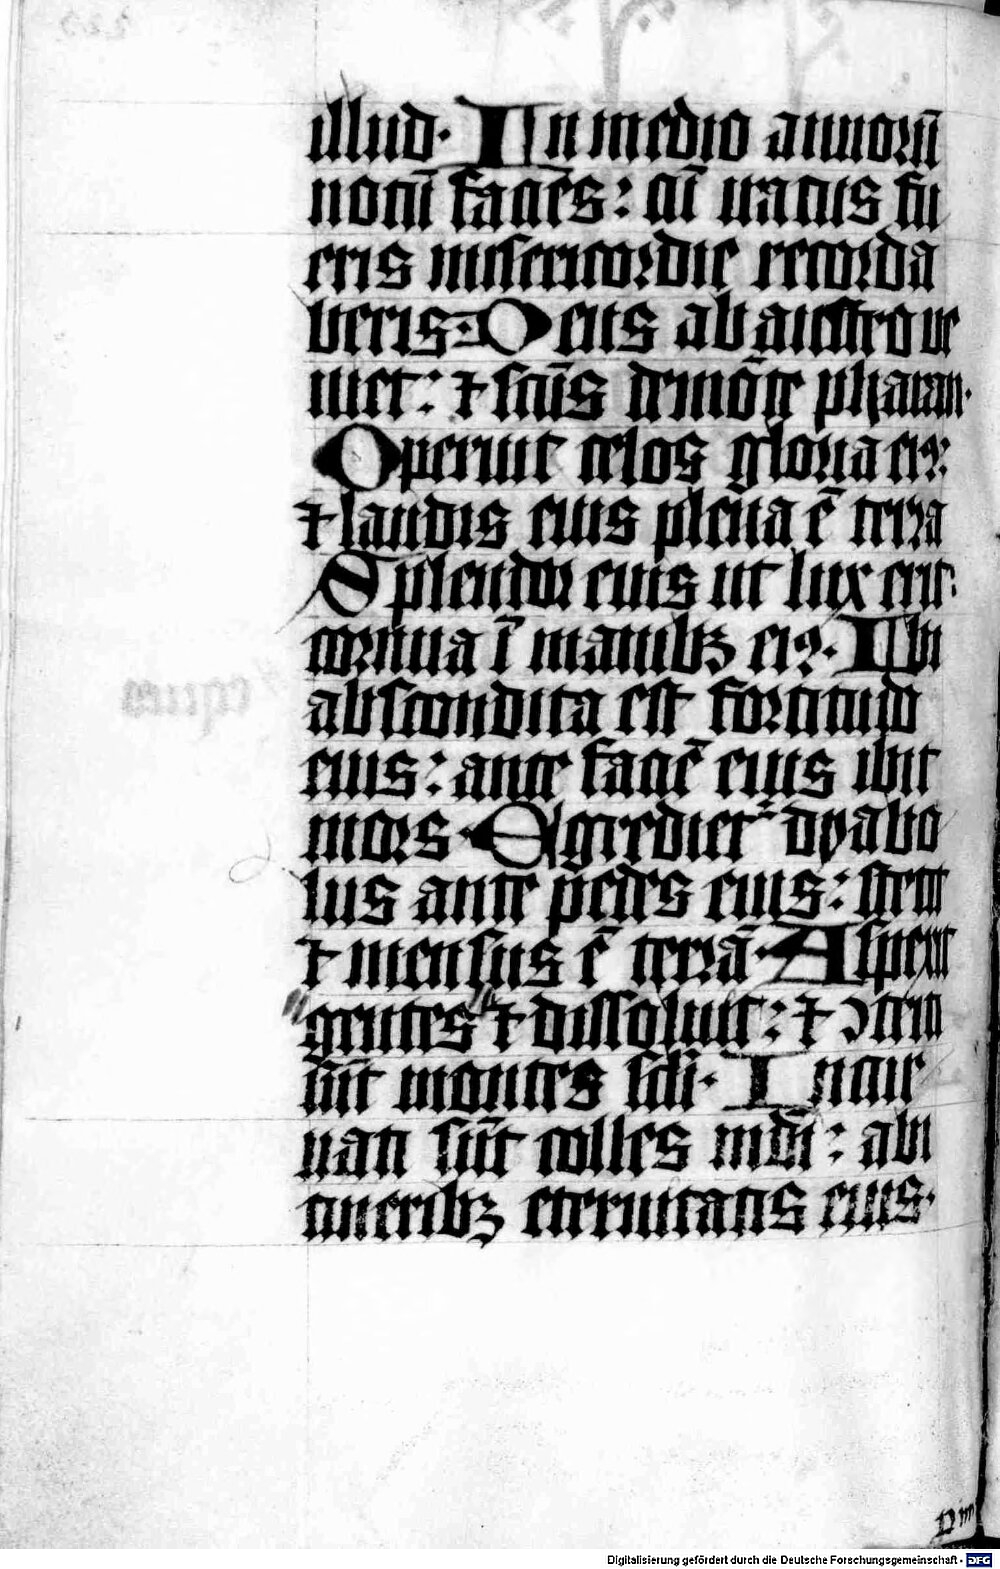 illud. In medio annorū
notū facies: cū iratus fu
eris misericordie recorda
beris. Deus ab austro ve
niet: ⁊ scūs de mōte pharan.
Operuit celos gloria eiꝰ:
⁊ laudis eius plena ē terra
Splendor eius ut lux erit:
cornua ī manibꝫ eiꝰ. Ibi
abscondita est fortitudo
eius: ante faciē eius ibit
mors. Egredietur dyabo
lus ante pedes eius: stetit
⁊ mensus ē terrā. Aspexit
gentes ⁊ dissoluit: ⁊ ↄtriti
sūt montes scli. Incur
uati sūt colles mdi: ab i
tineribꝫ eternitatis eius.
Digitalisierung gefördert durch die Deutsche Forschungsgemeinschaft - DFG